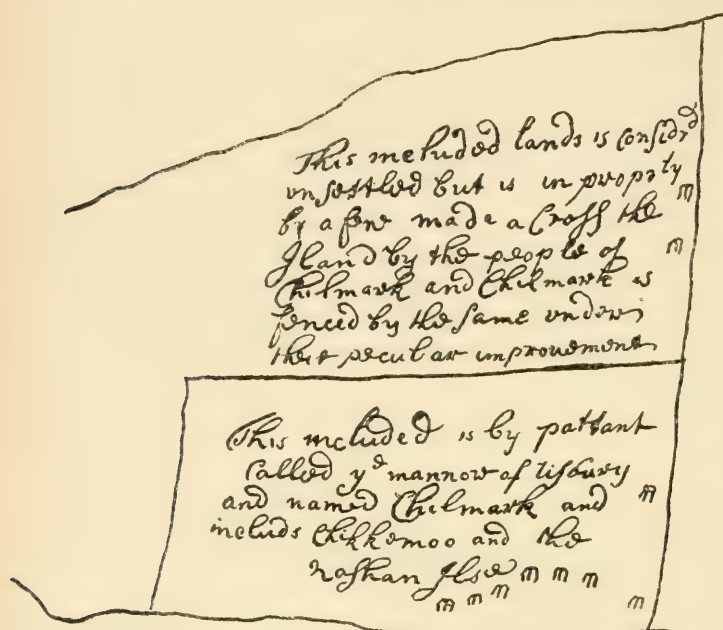 This included lands is considrd
unsettled but is in proprty
by a fenc made a Cross the
Iland by the people of
Chilmark and Chilmark is
fenced by the same undern
their peculiar improuement
This included is by pattant
Called ye mannor of tisbury
and named Chilmark and
includs Chikkemoo and the
nashan Ilse